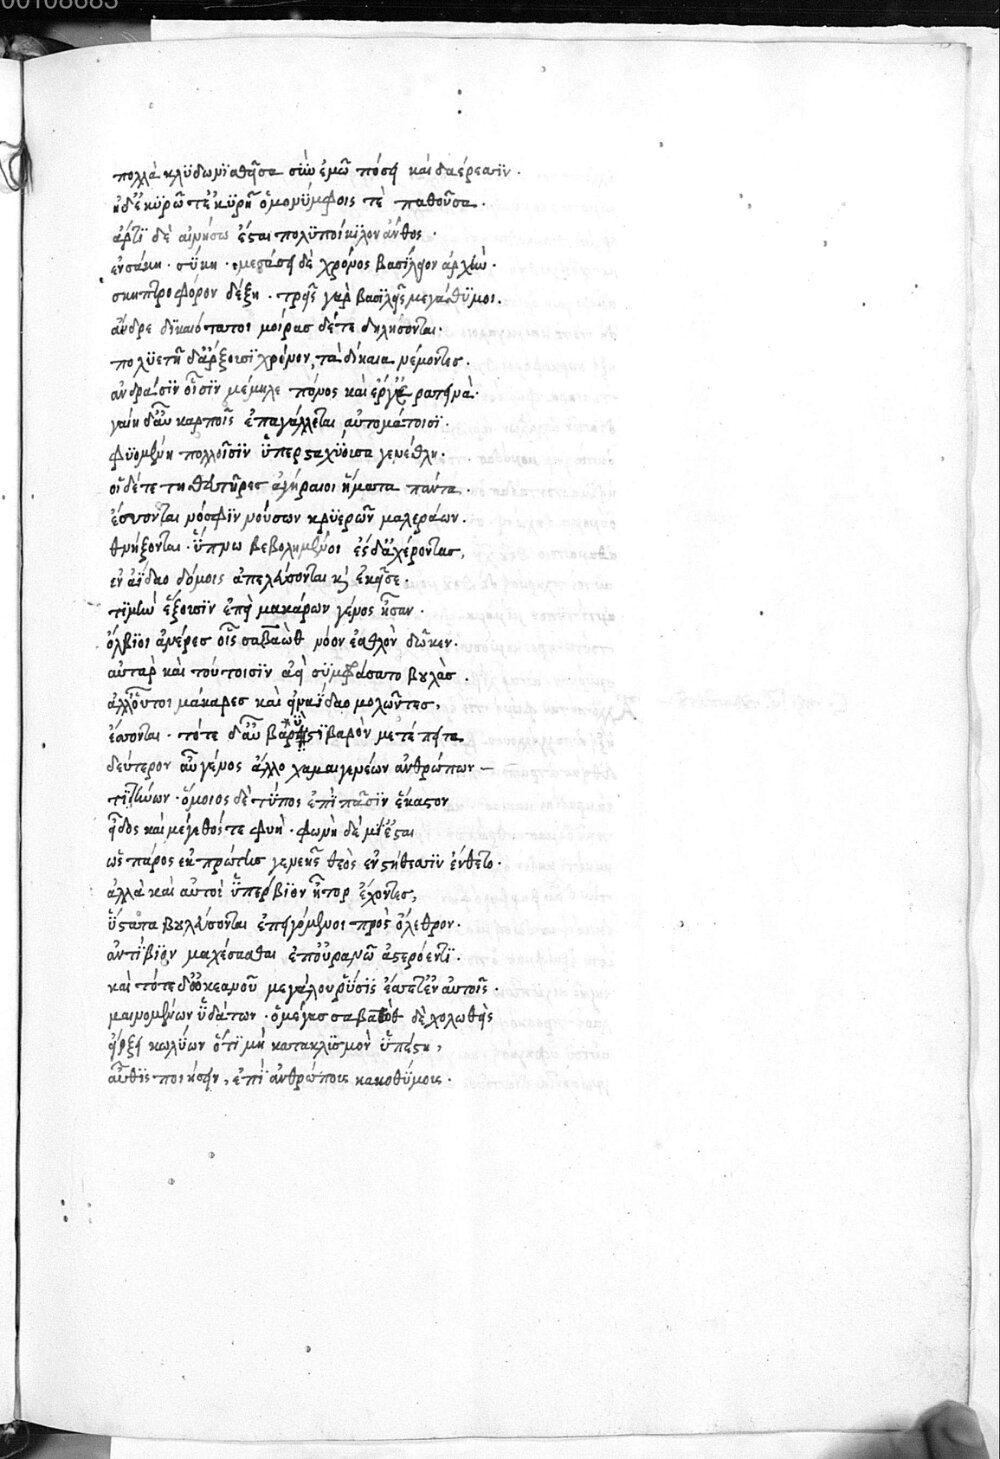 00108683
πολλὰ κλϋδωνϊσθεῖσα σὺν ἐμῶ πόσει καὶ δαέρεσσϊν.
ἠδ' ἐκϋρῶ τ' ἐκϋρῆ ὁμονϋμφοις τὲ παθοῦσα.
ἄρτϊ δὲ αἰνήσω ἔσται πολϋποίκϊλον ἄνθος.
ἐν σάκη. σύκη. μεσάσει δὲ χρόνος βασίλειον ἀρχὴν.
σκηπτροφόρον δέξει. τρεῖς γὰρ βασϊλεῖς μεγάθϋμοι.
ἄνδρε δϊκαιότατοι μοίρασ δέτε δηλήσονται.
πολϋετῆ δ' ἄρξουσϊ χρόνον, τὰ δίκαια νέμοντεσ.
ἀνδράσϊν οἷσϊν μέμηλε πόνος καὶ ἔργ' ἐρατεινὰ.
γαίη δ' αὖ καρποῖς ἐπαγάλλεται αὐτομάτοισϊ.
φϋομένη πολλοῖσϊν ὑπερσταχϋόισα γενέθλη.
οἱ δέτε τιθηντῆρεσ ἀγήραιοι ἤματα πάντα.
ἔσσονται νόσφϊν νούσων κρϋερῶν μαλεράων.
θνήξονται. ὕπνω βεβολημένοι ἐς δ' ἀχέροντασ,
ἐν ἀΐδαο δόμοις ἀπελεύσονται κὶ ἐκεῖσε.
τϊμὴν ἕξουσϊν ἐπεὶ μακάρων γένος ἦσαν.
ὄλβϊοι ἀνέρεσ οἷς σαβαὼθ νόον ἐσθλὸν δῶκεν.
αὐτὰρ καὶ τούτοισϊν ἀεὶ σϋμφράσατο βουλὰσ.
ἀλλ' οὗτοι μάκαρεσ καὶ εἰν ἀΐδαο μολῶντεσ,
ἔσσονται. τότε δ' αὖ βαρὺ στϊβαρὸν μετέπειτα.
δεύτερον αὖ γένος ἄλλο χαμαιγενέων ἀνθρώπων –
τϊτήνων. ὅμοιος δὲ τύπος ἐπὶ πᾶσϊν ἕκαστον
εἶδος καὶ μέγεθός τε φυὴ. φωνὴ δὲ μί' ἔσται
ὡς πάρος ἐκ πρώτης γενεῆς θεὸς ἐν στήθεσσϊν ἔνθετο.
ἀλλὰ καὶ αὐτοὶ ὑπέρβϊον ἦτορ ἔχοντες,
ὕστατα βουλεύσονται ἐπειγόμενοι πρὸς ὄλεθρον.
ἀντίβϊον μαχέσασθαι ἐπ' οὐρανῶ ἀστερόεντϊ.
καὶ τότε δ' ὠκεανοῦ μεγάλου ῥύσϊς ἔσσετ' ἐν αὐτοῖς.
μαινομένων ὑδάτων. ὁ μέγασ σαβαὼθ δὲ χολωθεὶς
εἴρξει κωλύων ὅτϊ μὴ κατακλϊσμὸν ὑπέστη,
αὖθϊς ποιήσειν, ἐπϊ ἀνθρώποις κακοθύμοις.